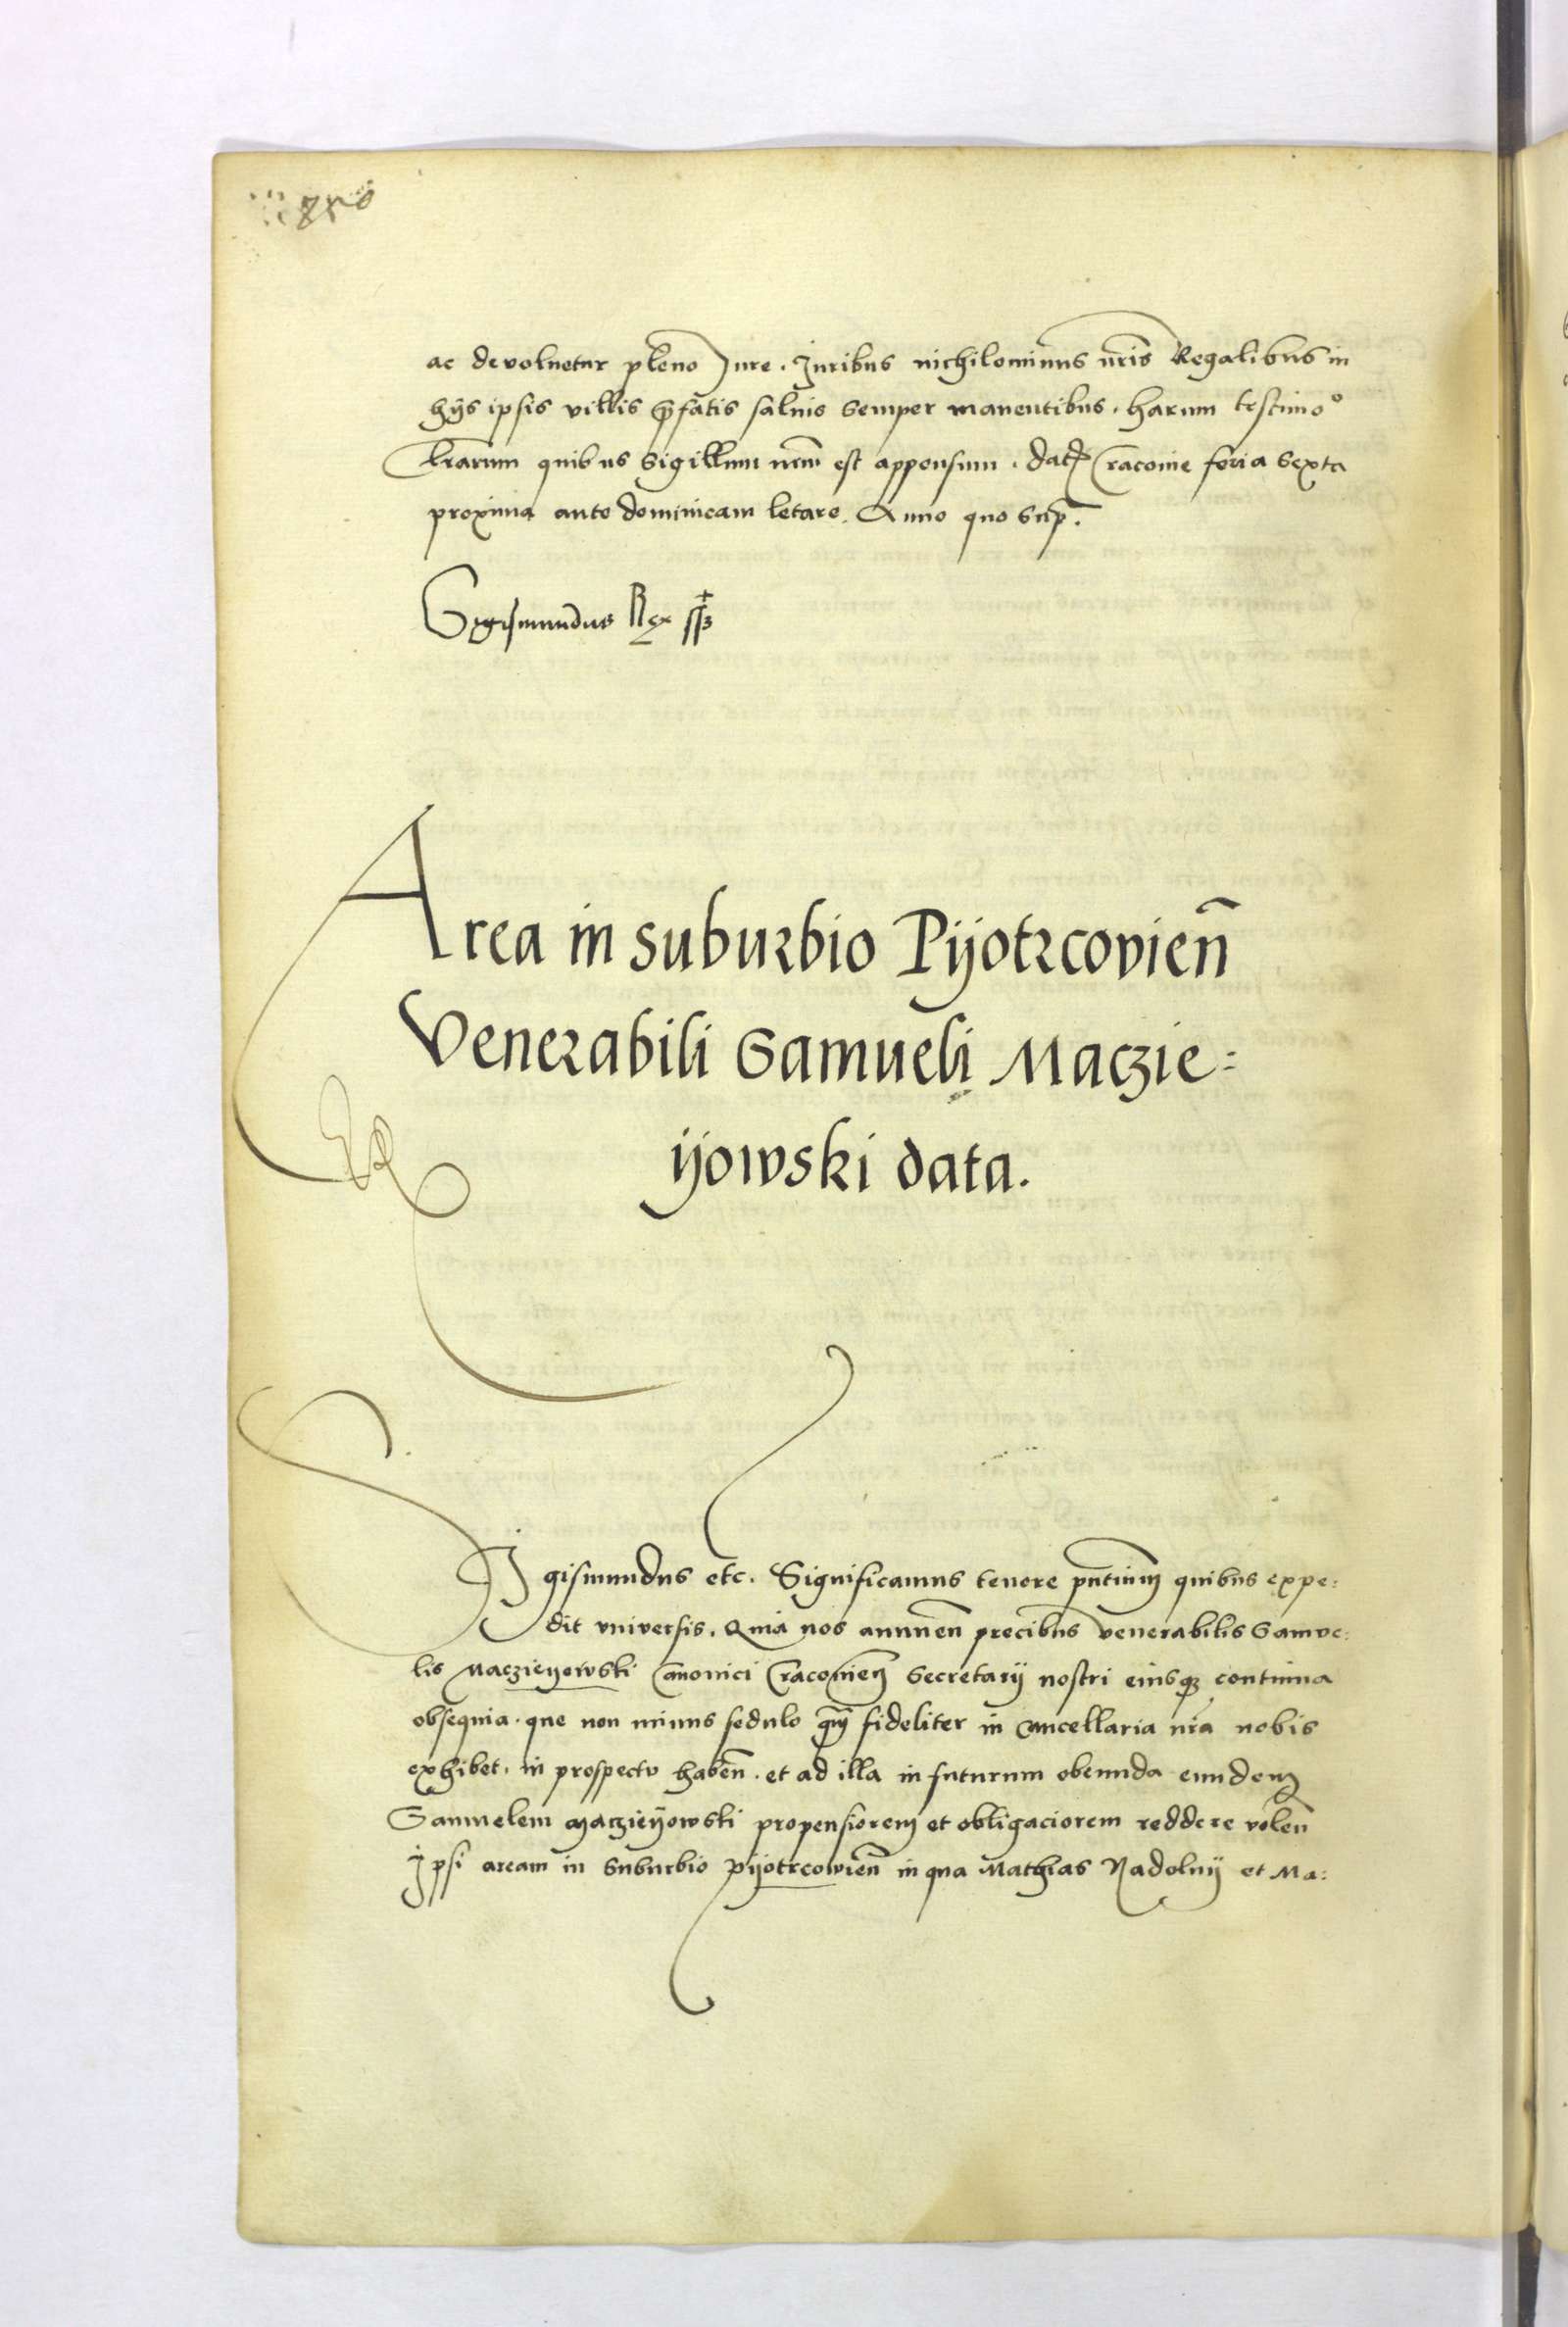 ac devoluetur pleno Jure. Juribus nichilominus nr̃is Regalibus in
hijs ipsis villis p̃fatis saluis semper manentibus. harum testimoº
l̃rarum quibus Sigillum nr̃m est appensum. dat̃ Cracovie feria Sexta
proxima ante dominicam letare. Anno quo sup̃.
Sigismundus Rex ss̃
Area in suburbio Pijotrcovien̄
Venerabili Samueli Maczie:
ijowski data.
Sigismundus etc. Significamus tenore pñtium quibus expe:
dit vniversis. Quia nos annuen̄ precibus venerabilis Samue:
lis Maczieyowski Canonici Cracovien̄ Secretarij nostri eiusq3 continua
obsequia. que non minus sedulo qua̅m fideliter in Cancellaria nr̃a nobis
exhibet. in prospectu haben̄. et ad illa in futurum obeunda eundem
Samuelem Maczieijowski propensiorem et obligaciorem reddere volen̄
Jpsi aream in suburbio Pijotrcowien̄ in qua Mathias Nadolnij et Ma: